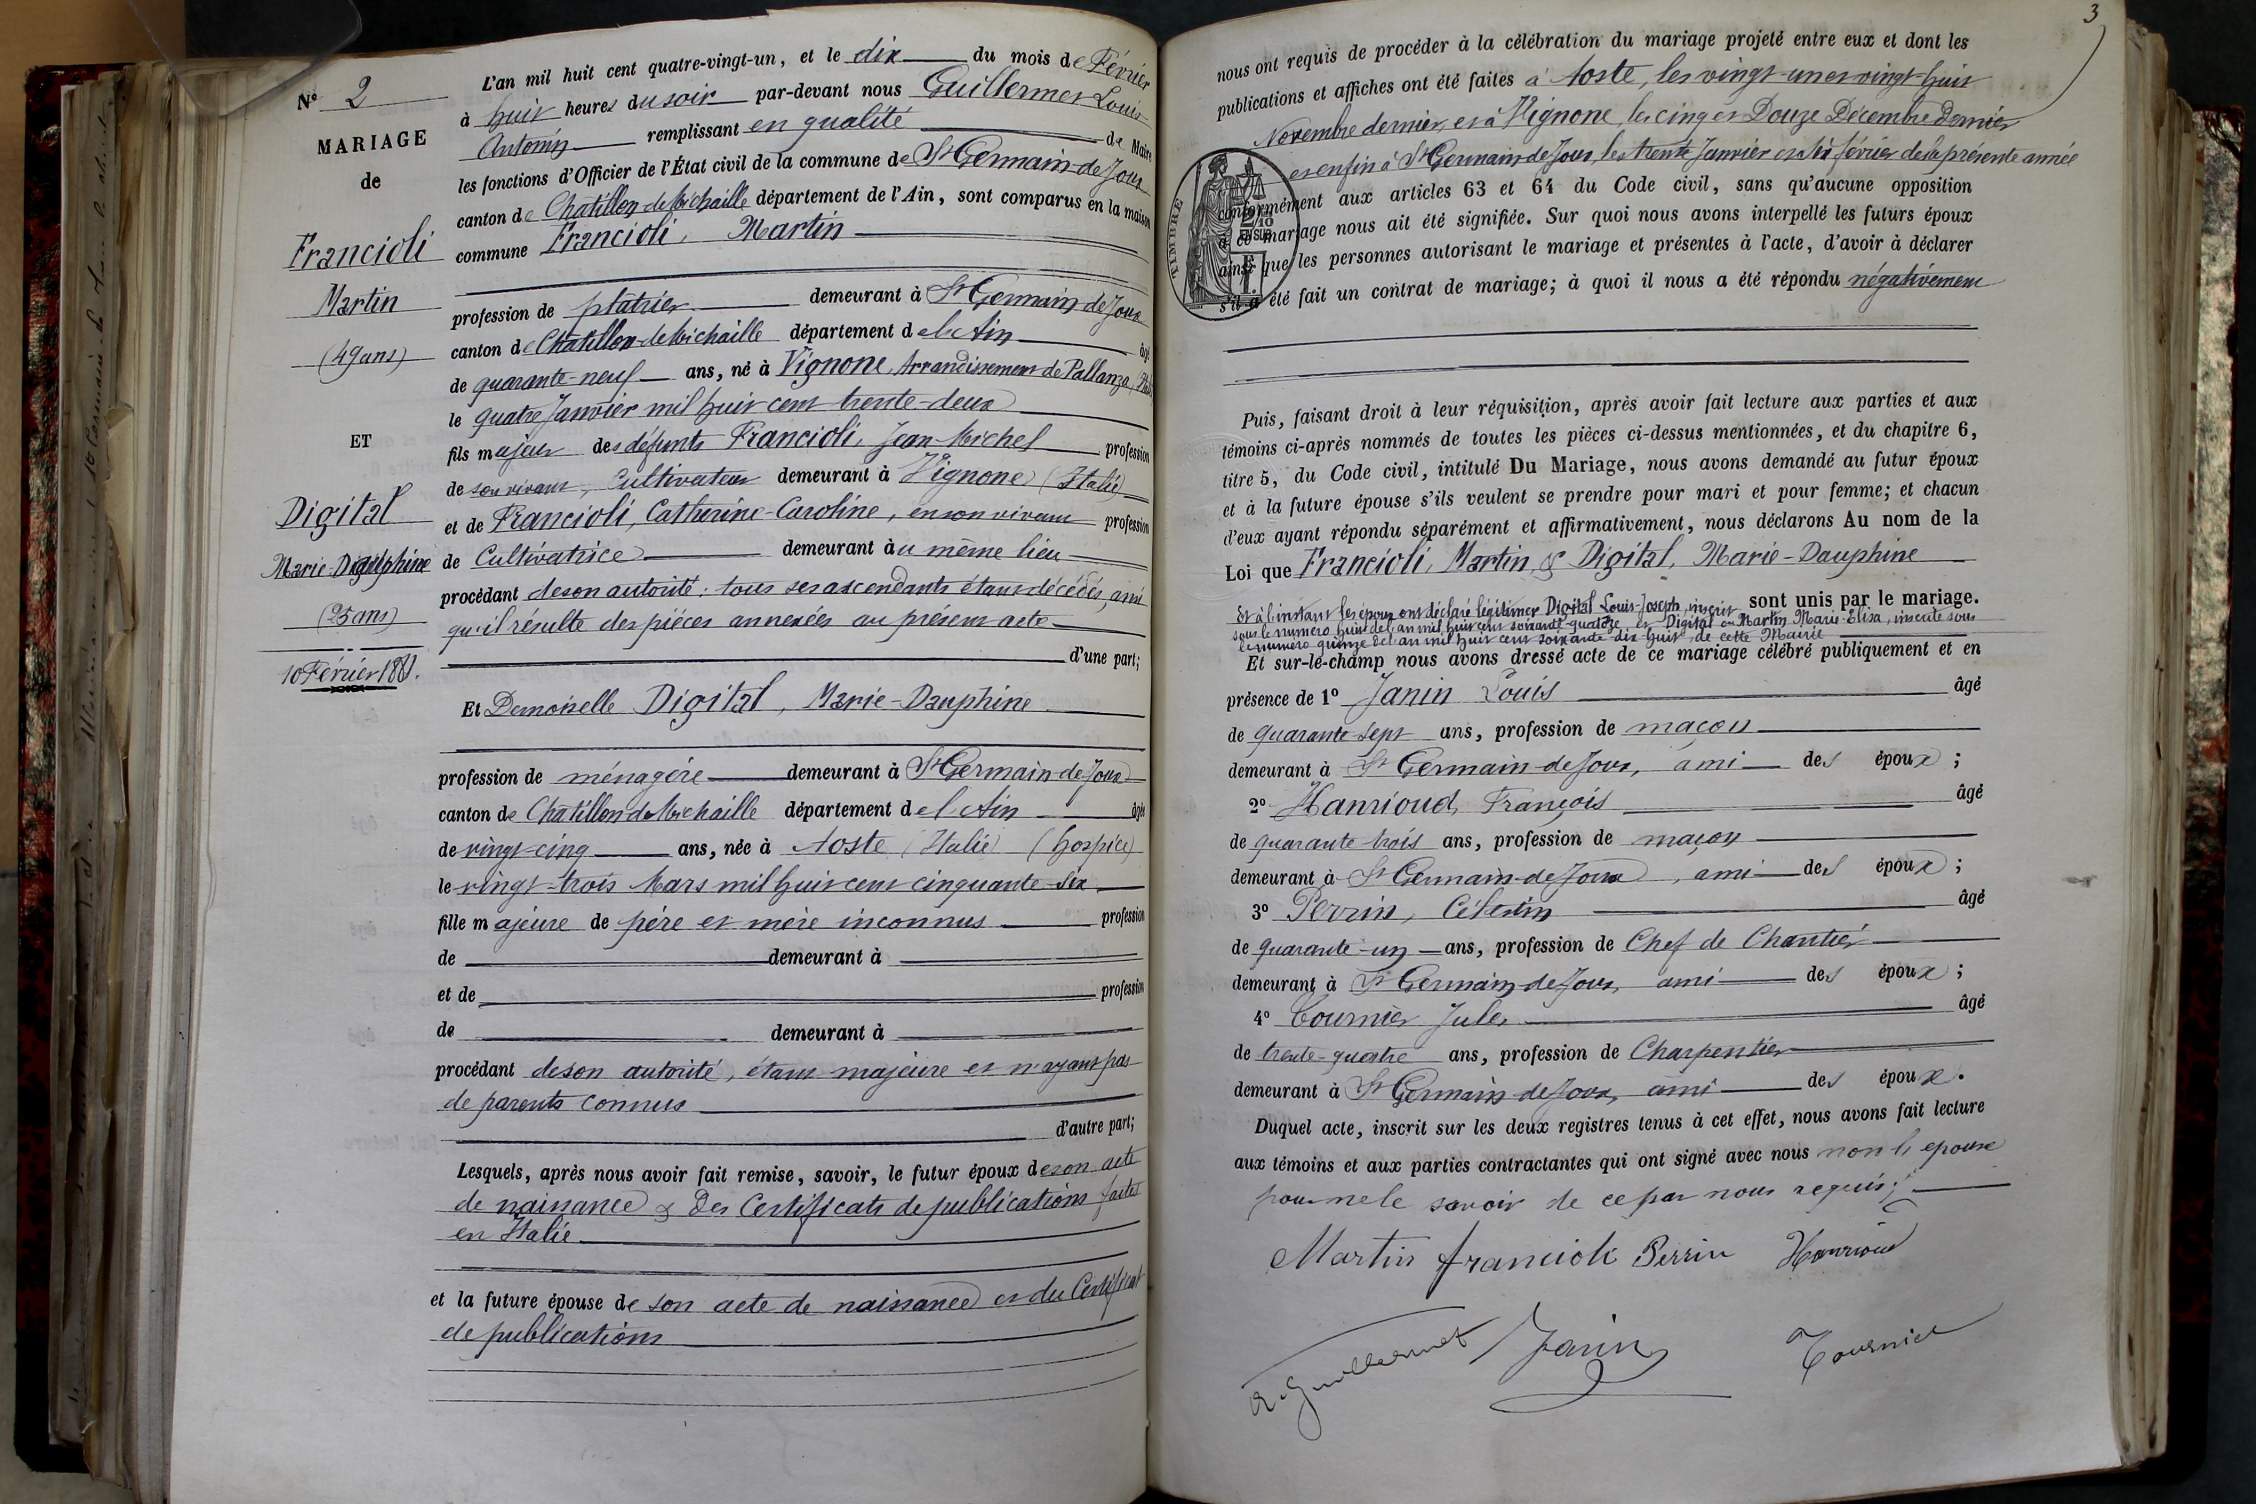 N° 2
MARIAGE
de
Francioli
Martin
(49 ans)
ET
Digital
Marie-Dauphine
(25 ans)
10 Février 1881.
L'an mil huit cent quatre-vingt-un, et le dix du mois de Février
à huit heures du soir par-devant nous Guillermet Louis
Antonin remplissant en qualité de Maire
les fonctions d'Officier de l'État civil de la commune de St Germain-de-Joux
canton de Chatillon de Michaille département de l'Ain, sont comparus en la maison
commune Francioli, Martin
profession de platrier demeurant à St Germain de Joux
canton de Chatillon-de-Michaille département de l'Ain âgé
de quarante-neuf ans, né à Vignone, Arrondissement de Pallanza
le quatre Janvier mil huit cent trente-deux
fils majeur des défunts Francioli, Jean-Michel profession
de son vivant, Cultivateur demeurant à Vignone (Italie)
et de Francioli, Catherine-Caroline, en son vivant profession
de Cultivatrice demeurant au même lieu
procédant de son autorité: tous ses ascendants étant décédés, ainsi
qu'il résulte des pièces annexées au présent acte
d'une part;
Et Demoiselle Digital, Marie-Dauphine
profession de ménagère demeurant à St Germain-de-Joux
canton de Chatillon de Michaille département de l'Ain âgée
de vingt-cinq ans, née à Aoste (Italie) (hospice)
le vingt-trois Mars mil huit cent cinquante-six
fille majeure de père et mère inconnus profession
de demeurant à
et de profession
de demeurant à
procédant de son autorité, étant majeure et n'ayant pas
de parents connus
d'autre part;
Lesquels, après nous avoir fait remise, savoir, le futur époux de son acte
de naissance & des Certificats de publications faites
en Italie
et la future épouse de son acte de naissance et du Certificat
de publications
3
nous ont requis de procéder à la célébration du mariage projeté entre eux et dont les
publications et affiches ont été faites à Aoste, les vingt-un et vingt-huit
Novembre dernier, et à Vignone, les cinq et Douze Décembre Dernier
et enfin à St Germain-de-Joux, les trente Janvier et six février de la présente année
TIMBRE
conformément aux articles 63 et 64 du Code civil, sans qu'aucune opposition
à ce mariage nous ait été signifiée. Sur quoi nous avons interpellé les futurs époux
ainsi que les personnes autorisant le mariage et présentes à l'acte, d'avoir à déclarer
s'il a été fait un contrat de mariage; à quoi il nous a été répondu négativement
Puis, faisant droit à leur réquisition, après avoir fait lecture aux parties et aux
témoins ci-après nommés de toutes les pièces ci-dessus mentionnées, et du chapitre 6,
titre 5, du Code civil, intitulé Du Mariage, nous avons demandé au futur époux
et à la future épouse s'ils veulent se prendre pour mari et pour femme; et chacun
d'eux ayant répondu séparément et affirmativement, nous déclarons Au nom de la
Loi que Francioli, Martin, & Digital, Marie-Dauphine
sont unis par le mariage.
Et à l'instant les époux ont déclaré légitimer Digital Louis-Joseph, inscrit
sous le numero huit de l'an mil huit cent soixante-quatorze et Digital ou Martin Marie-Elisa, inscrite sous
le numero quinze de l'an mil huit cent soixante-dix-huit, de cette Mairie
Et sur-le-champ nous avons dressé acte de ce mariage célébré publiquement et en
présence de 1° Janin Louis âgé
de quarante-sept ans, profession de maçon
demeurant à St Germain-de-Joux, ami des époux;
2° Hanrioud, François âgé
de quarante-trois ans, profession de maçon
demeurant à St Germain-de-Joux, ami des époux;
3° Perrin, Célestin âgé
de quarante-un ans, profession de Chef de Chantier
demeurant à St Germain-de-Joux, ami des époux;
4° Tournier Jules âgé
de trente-quatre ans, profession de Charpentier
demeurant à St Germain-de-Joux, ami des époux.
Duquel acte, inscrit sur les deux registres tenus à cet effet, nous avons fait lecture
aux témoins et aux parties contractantes qui ont signé avec nous non l'epouse
pour ne le savoir de ce par nous requis;
Martin francioli Perrin Hanrioud
A. Guillermet Janin Tournier